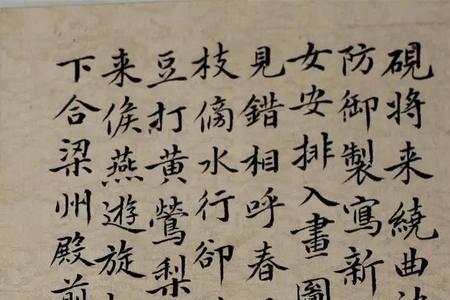 硯将来繞曲
防御製寫新
女安排入畫圖
見錯相呼春
枝傍水行卻
豆打黄鶯梨
来候燕遊旋
下合梁州殿前